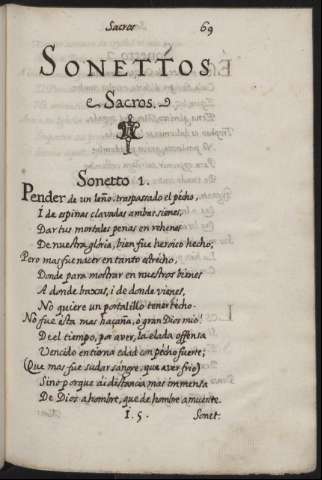 Sacros 69
SONETTOS
Sacros.
Sonetto 1.
Pender de un leño, traspassado el pecho,
I de espinas clavadas ambas sienes,
Dar tus mortales penas en rehenes
De nuestra gloria, bien fue heroico hecho;
Pero mas fue nacer en tanto estrecho,
Donde para mostrar en nuestros bienes
A donde baxas, i de donde vienes,
No quiere un portalillo tener techo.
No fue ésta mas haçaña, ò gran Dios mio!
De el tiempo, por aver, la elada offensa
Vencido en tierna edad con pecho fuerte;
(Que mas fue sudar sangre, que aver frio)
Sino porque ài distancia mas immensa
De Dios a hombre, que de hombre a muerte.
I. 5. Sonet.